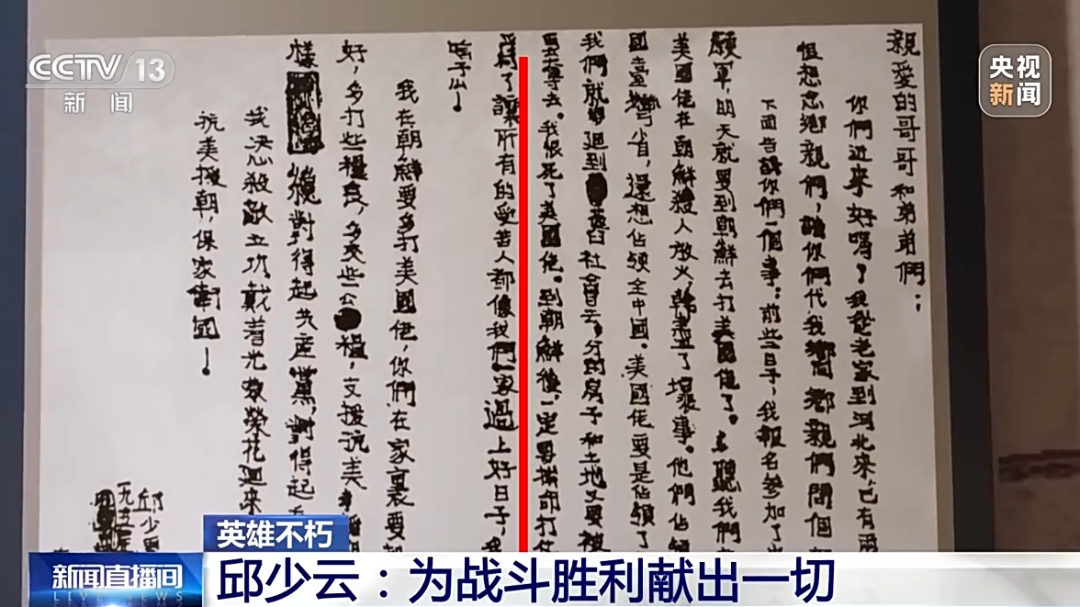 CCTV 13
新闻
央视
新闻
親愛的哥哥和弟弟們：
你們近來好嗎？我從老家到河北來，已有兩
但想念鄉親們，請你們代我向鄉親們問個
下面告訴你們一個事：前些日子，我報名參加了
願軍，明天就要到朝鮮去打美國佬了。聽我們
美國佬在朝鮮殺人放火，幹盡了壞事。他們佔領
國臺灣省，還想佔領全中國。美國佬要是佔領了
我們就 迴到 舊社會去，分的房子和土地又要被
去。我恨死了美國佬。到朝鮮後，一定要拚命打
爲了讓所有的受苦人都像我們家過上好日子，我
我在朝鮮要多打美國佬，你們在家裏要
好，多打些糧食，多交些公糧，支援抗美
樣 纔對得起共産黨，對得起
我决心殺敵立功，戴着光榮花迴來
抗美援朝，保家衛國！
邱少
一九五
英雄不朽
新闻直播间
LIVE NEWS
邱少云：为战斗胜利献出一切